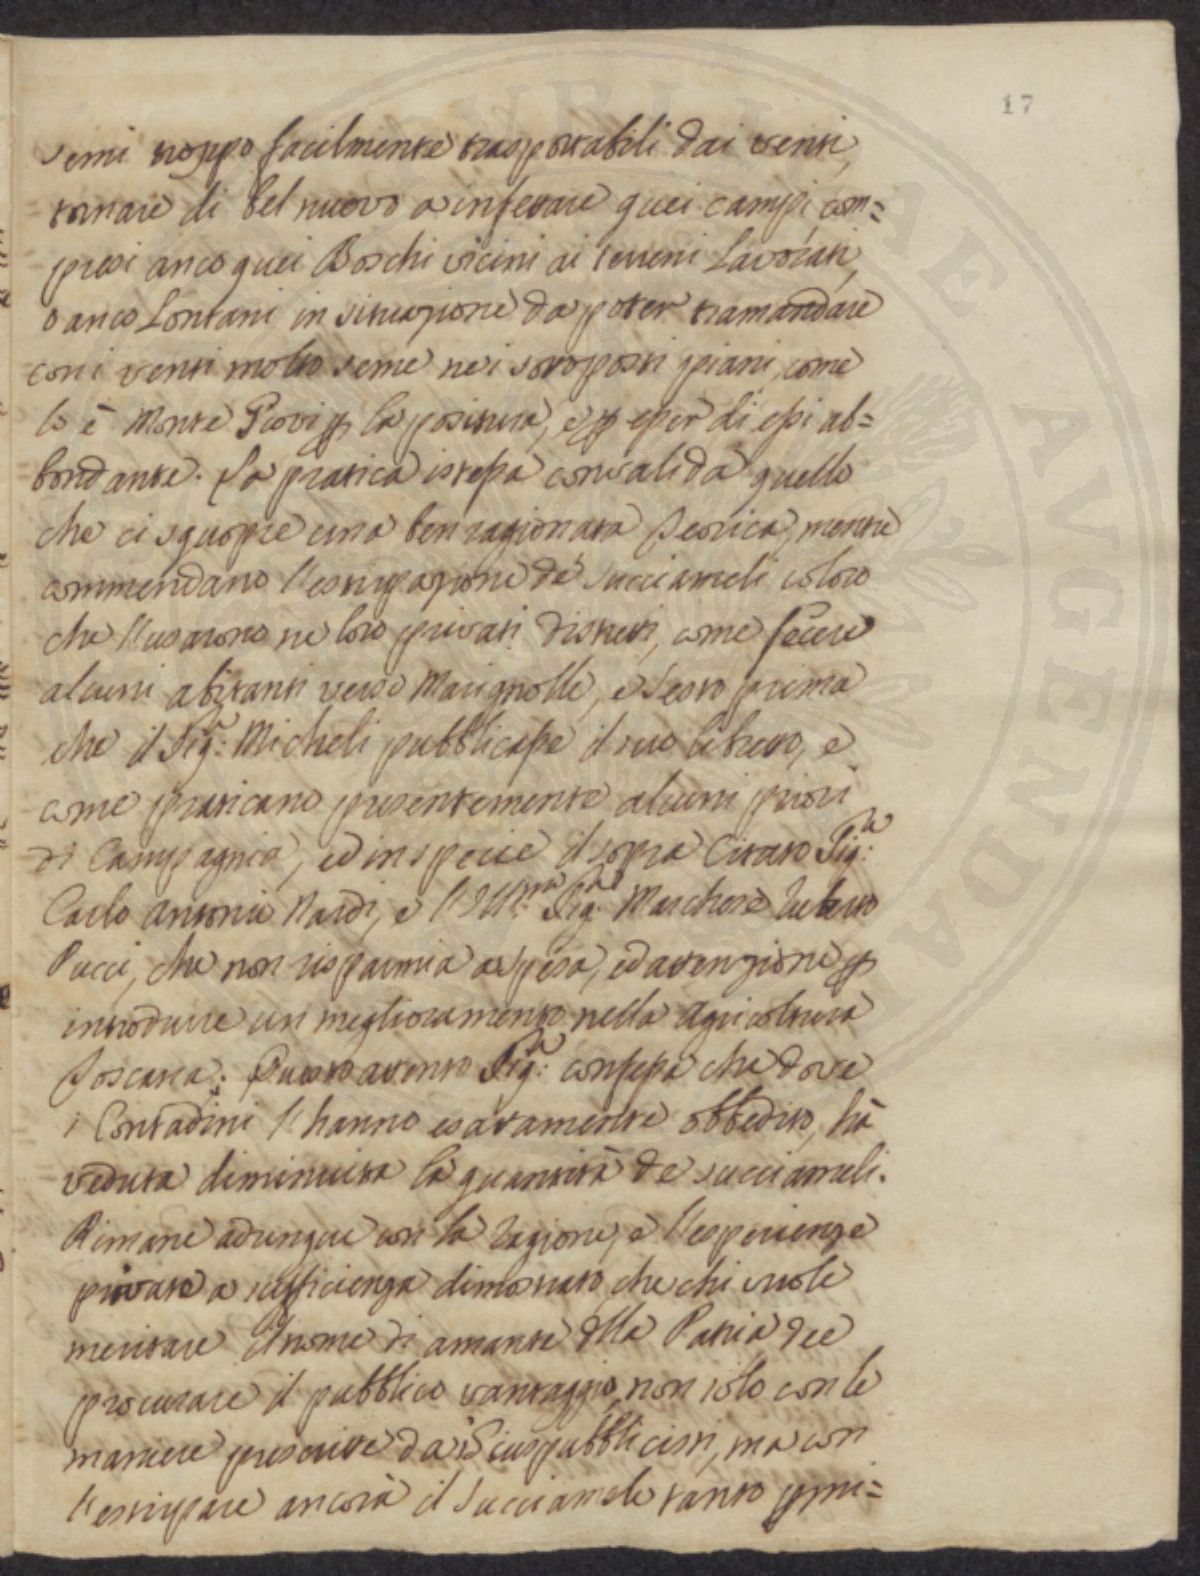 17
semi troppo facilmente trasportabili dai venti,
tornare di bel nuovo a infettare quei campi, com=
presi anco quei Boschi vicini ai terreni Lavorati,
o anco Lontani in situazione da poter tramandare
con i venti molto seme nei sottoposti piani, come
lo è Monte Piovi p la positura, e p esser di essi ab=
bondante. La pratica istessa convalida quello
che ci scuopre una ben ragionata Teorica, mentre
commendano l'estirpazione de' succiameli coloro
che l'usarono ne loro privati distretti, come fecere
alcuni abitanti verso Marignolle, e Sesto prima
che il Sig:r Micheli pubblicasse il suo libretto, e
come praticano presentemente alcuni priori
di Campagnia, ed in specie il sopra Citato Sig:r
Carlo Antonio Nardi, e l'Ill:mo Sig:re Marchese
Pucci, che non risparmia a spesa, ed attenzione p
introdurre un miglioramento nella Agricoltura
Toscana. Questo attento Sig:r confessa che dove
i Contadini l'hanno esattamente obbedito, hà
veduta diminuita la quantità de succiameli.
Rimane adunque con la ragione, e l'esperienze
private a sufficienza dimostrato, che chi vuole
meritare il nome di amante dlla Patria dee
procurare il pubblico vantaggio, non solo con le
maniere prescritte da i Giuspubblicisti, ma con
l'estirpare ancora il Succiamele tanto pni=
PVBLICAE AVGENDAE